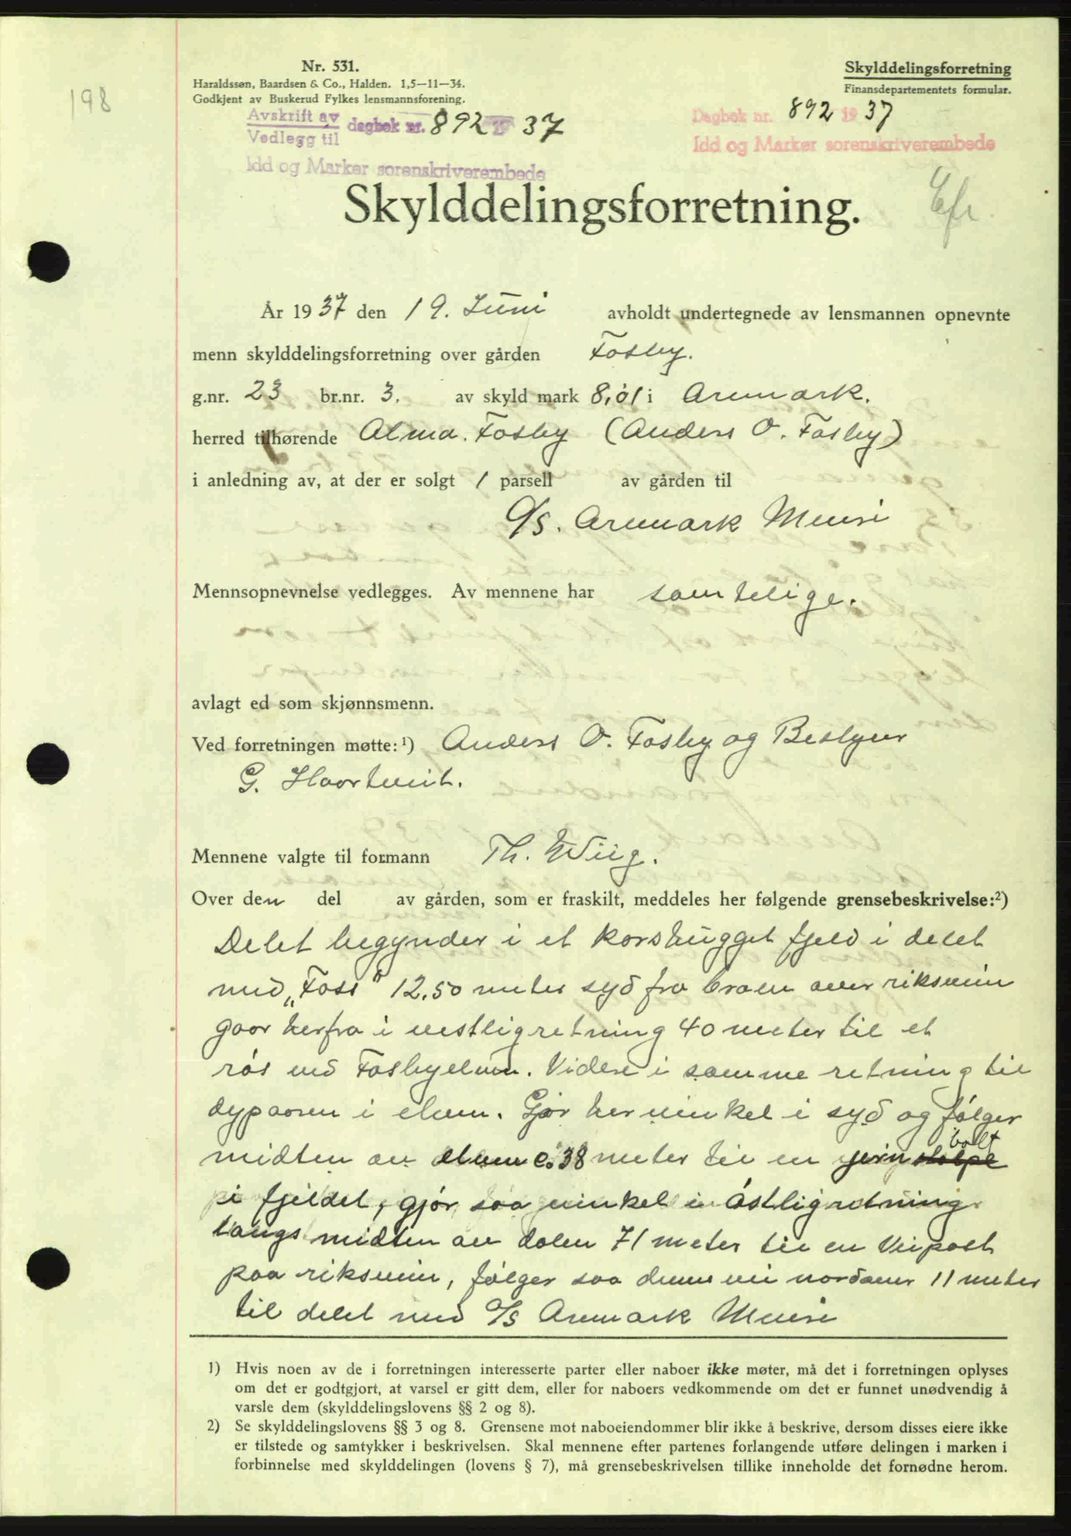 198
Nr. 531.
Haraldssøn, Baardsen & Co., Halden. 1,5—11—34.
Godkjent av Buskerud Fylkes lensmannsforening.
Skylddelingsforretning
Finansdepartementets formular.
Avskrift av
Vedlegg til dagbok nr. 892 19 37
Idd og Marker sorenskriverembede
Dagbok nr. 892 19 37
Idd og Marker sorenskriverembede
Skylddelingsforretning.
År 1937 den 19. Juni avholdt undertegnede av lensmannen opnevnte
menn skylddelingsforretning over gården Fosby.
g.nr. 23 br.nr. 3. av skyld mark 8,01 i Aremark.
herred tilhørende Alma. Fosby (Anders O. Fosby)
i anledning av, at der er solgt 1 parsell av gården til
A/S. Aremark Meieri
Mennsopnevnelse vedlegges. Av mennene har samtelige.
avlagt ed som skjønnsmenn.
Ved forretningen møtte: ¹) Anders O. Fosby og Bestyrer
G. Haartveit.
Mennene valgte til formann Th. Wiig.
Over den del av gården, som er fraskilt, meddeles her følgende grensebeskrivelse:²)
Delet begynder i et korshugget fjeld i delet
med „Foss" 12.50 meter syd fra broen over riksveien
gaar herfra i vestligretning 40 meter til et
røs ved Fosbyelven. Videre i samme retning til
dypaaren i elven. Gjør her vinkel i syd og følger
midten av elven c. 38 meter til en jern stolpe bolt
i fjeldet, gjør saa vinkel i østlig retning
langs midten av dalen 71 meter til en Veipost
paa riksveien, følger saa denne vei nordover 11 meter
til delet med A/S Aremark Meieri
1) Hvis noen av de i forretningen interesserte parter eller naboer ikke møter, må det i forretningen oplyses
om det er godtgjort, at varsel er gitt dem, eller for naboers vedkommende om det er funnet unødvendig å
varsle dem (skylddelingslovens §§ 2 og 8).
2) Se skylddelingslovens §§ 3 og 8. Grensene mot naboeiendommer blir ikke å beskrive, dersom disses eiere ikke
er tilstede og samtykker i beskrivelsen. Skal mennene efter partenes forlangende utføre delingen i marken i
forbinnelse med skylddelingen (lovens § 7), må grensebeskrivelsen tillike inneholde det fornødne herom.